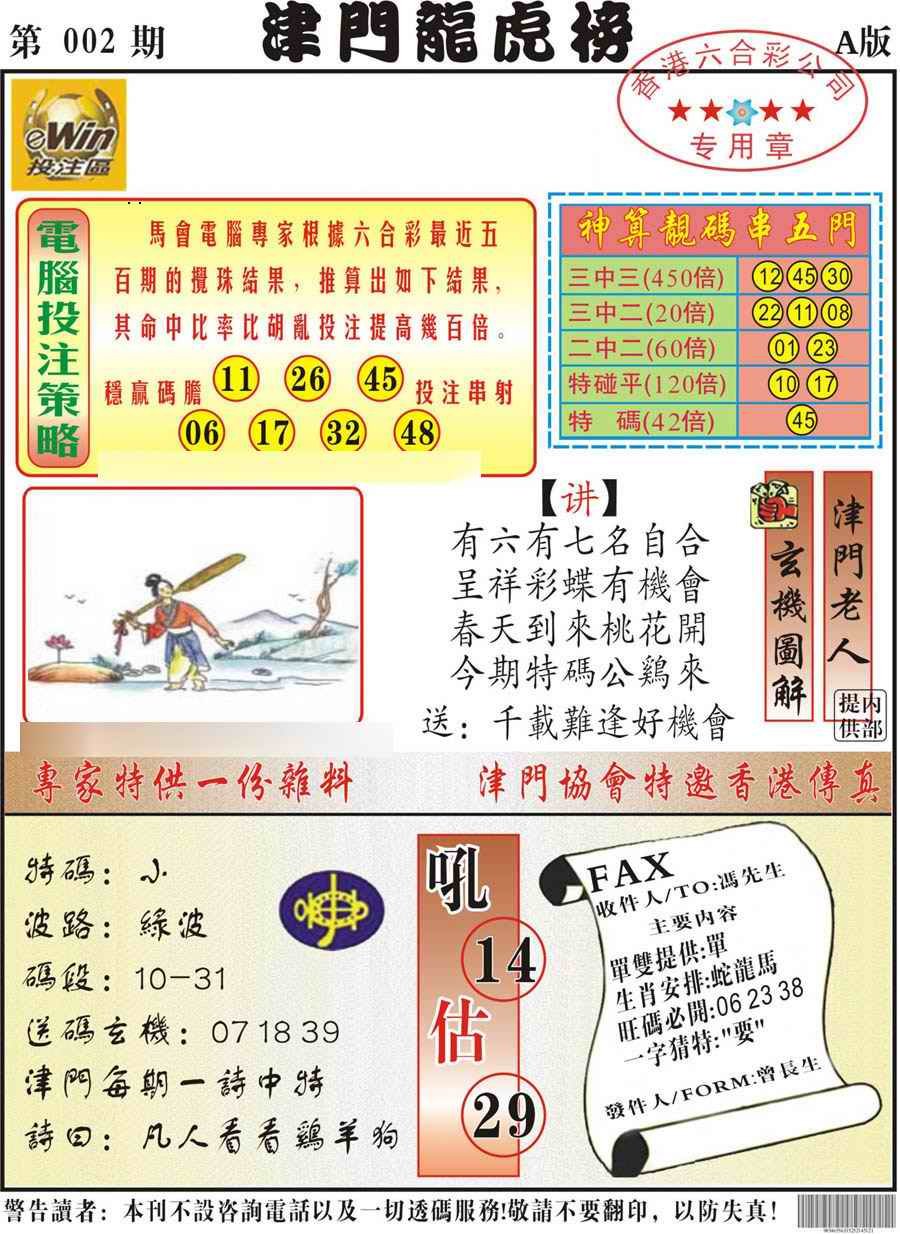 第 002 期
津門龍虎榜
A版
香港六合彩公司
专用章
eWin
投注區
電腦投注策略
馬會電腦專家根據六合彩最近五
百期的攪珠結果，推算出如下結果，
其命中比率比胡亂投注提高幾百倍。
穩贏碼膽 11 26 45 投注串射
06 17 32 48
神算靚碼串五門
三中三(450倍) 12 45 30
三中二(20倍) 22 11 08
二中二(60倍) 01 23
特碰平(120倍) 10 17
特 碼(42倍) 45
【讲】
有六有七名自合
呈祥彩蝶有機會
春天到來桃花開
今期特碼公鷄來
送：千載難逢好機會
玄機圖解
津門老人
内部提供
專家特供一份雜料
津門協會特邀香港傳真
特碼：小
波路：綠波
碼段：10-31
送碼玄機：07 18 39
津門每期一詩中特
詩曰：凡人看看鷄羊狗
吼
14
估
29
FAX
收件人/TO:馮先生
主要内容
單雙提供:單
生肖安排:蛇龍馬
旺碼必開:06 23 38
一字猜特:"要"
發件人/FORM:曾長生
警告讀者：本刊不設咨詢電話以及一切透碼服務!敬請不要翻印，以防失真！